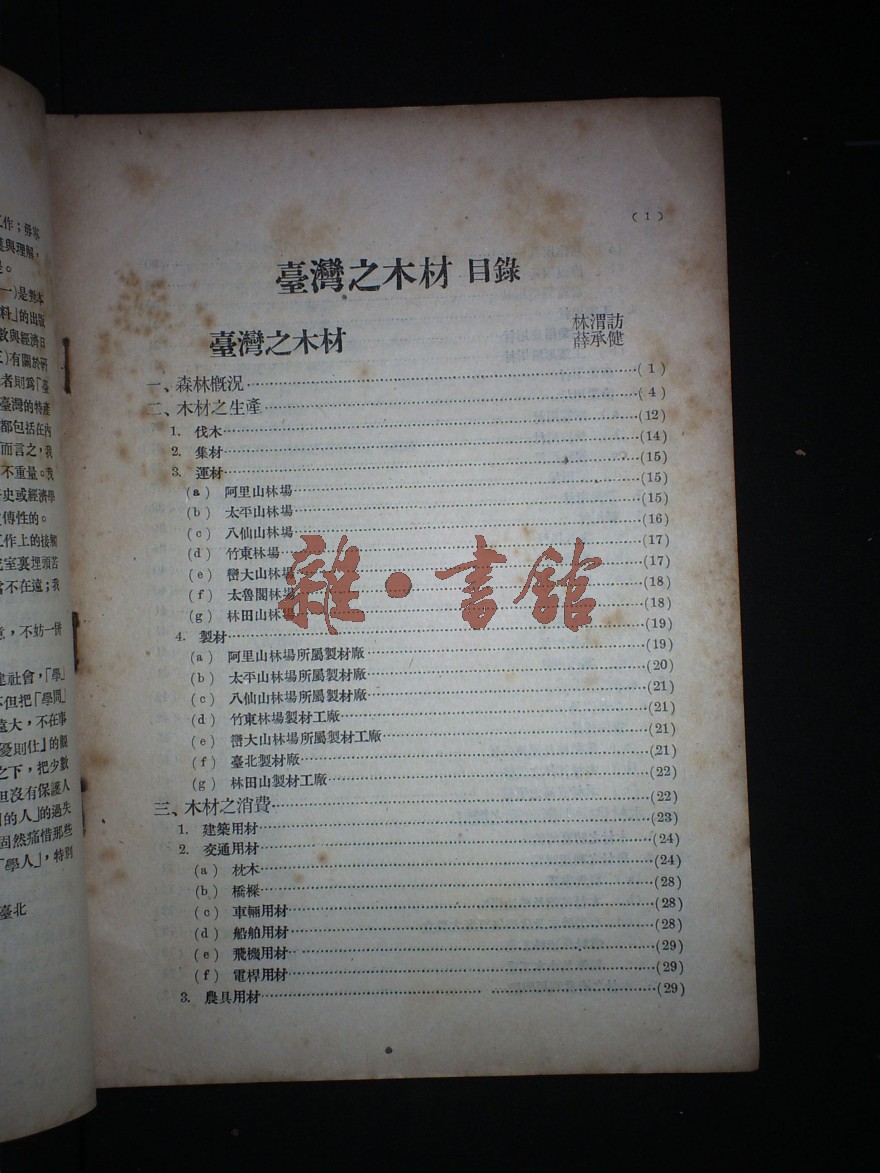 工作；毋寧
與理解，
是。
一)是對本
料」的出版
數與經濟日
三)有關於研
者則爲「臺
臺灣的特產
都包括在內
而言之，我
不重量。我
史或經濟學
傳性的。
工作上的接觸
究室裏埋頭苦
當不在遠；我
意，不妨一併
建社會，「學」
不但把「學問」
遠大，不在事
優則仕」的觀
之下，把少數
但沒有保護人
的人」的過失
固然痛惜那些
「學人」，特別
臺北
(1)
臺灣之木材 目錄
臺灣之木材
林渭訪
薛承健
一、森林槪況……(1)
二、木材之生產……(4)
1. 伐木……(12)
2. 集材……(14)
3. 運材……(15)
(a) 阿里山林場……(15)
(b) 太平山林場……(15)
(c) 八仙山林場……(16)
(d) 竹東林場……(17)
(e) 巒大山林場……(17)
(f) 太魯閣林場……(18)
(g) 林田山林場……(18)
4. 製材……(19)
(a) 阿里山林場所屬製材廠……(19)
(b) 太平山林場所屬製材廠……(20)
(c) 八仙山林場所屬製材廠……(21)
(d) 竹東林場製材工廠……(21)
(e) 巒大山林場所屬製材工廠……(21)
(f) 臺北製材廠……(21)
(g) 林田山製材工廠……(22)
三、木材之消費……(22)
1. 建築用材……(23)
2. 交通用材……(24)
(a) 枕木……(24)
(b) 橋樑……(28)
(c) 車輛用材……(28)
(d) 船舶用材……(28)
(e) 飛機用材……(29)
(f) 電桿用材……(29)
3. 農具用材……(29)
雜·書館